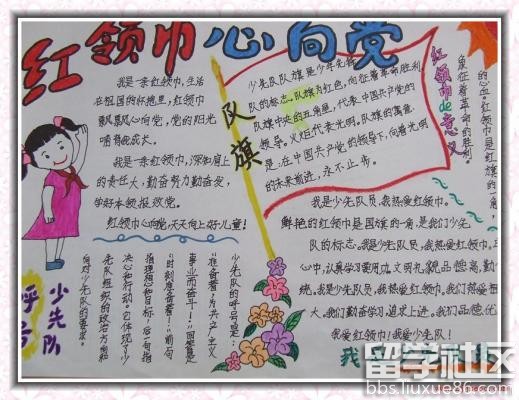 红领巾心向党
我是一条红领巾,生活
在祖国的怀抱里,红领巾
飘飘心向党,党的阳光
哺育我成长。
我是一条红领巾,深知肩上
的责任大,勤奋努力勤奋发,
学好本领报效党。
红领巾心向党,天天向上好儿童!
队旗
少先队队旗是少年先锋
队的标志。队旗为红色,向征着革命胜利
队旗中央的五角星,代表中国共产党的
领导。火炬代表光明。队旗的寓意
是:在中国共产党的领导下,向着光明
的未来前进,永不上步。
红领巾de意义
的心血。红领巾是红旗的一角,
象征着革命的胜利。
我是少先队员,我热爱红领巾。
鲜艳的红领巾是国旗的一角,是我们少先
队的标志。我是少先队员,我热爱红领巾。
心中,认真学习爱用功,文明礼貌品德高,勤
统。我是少先队员,我热爱红领巾。我们热爱
大。我们勤奋学习,追求上进。我们品德优
我爱红领巾!我爱少先队!
少先队
呼号
少先队的呼号是:
"准备着:为共产主义
事业而奋斗!"回答是
"时刻准备着!"前句
指理想和目标,后一句指
决心和行动。它体现了少
先队组织的政治方向和
党对少先队的要求。
我
留学社区
bbs.liuxue86.com